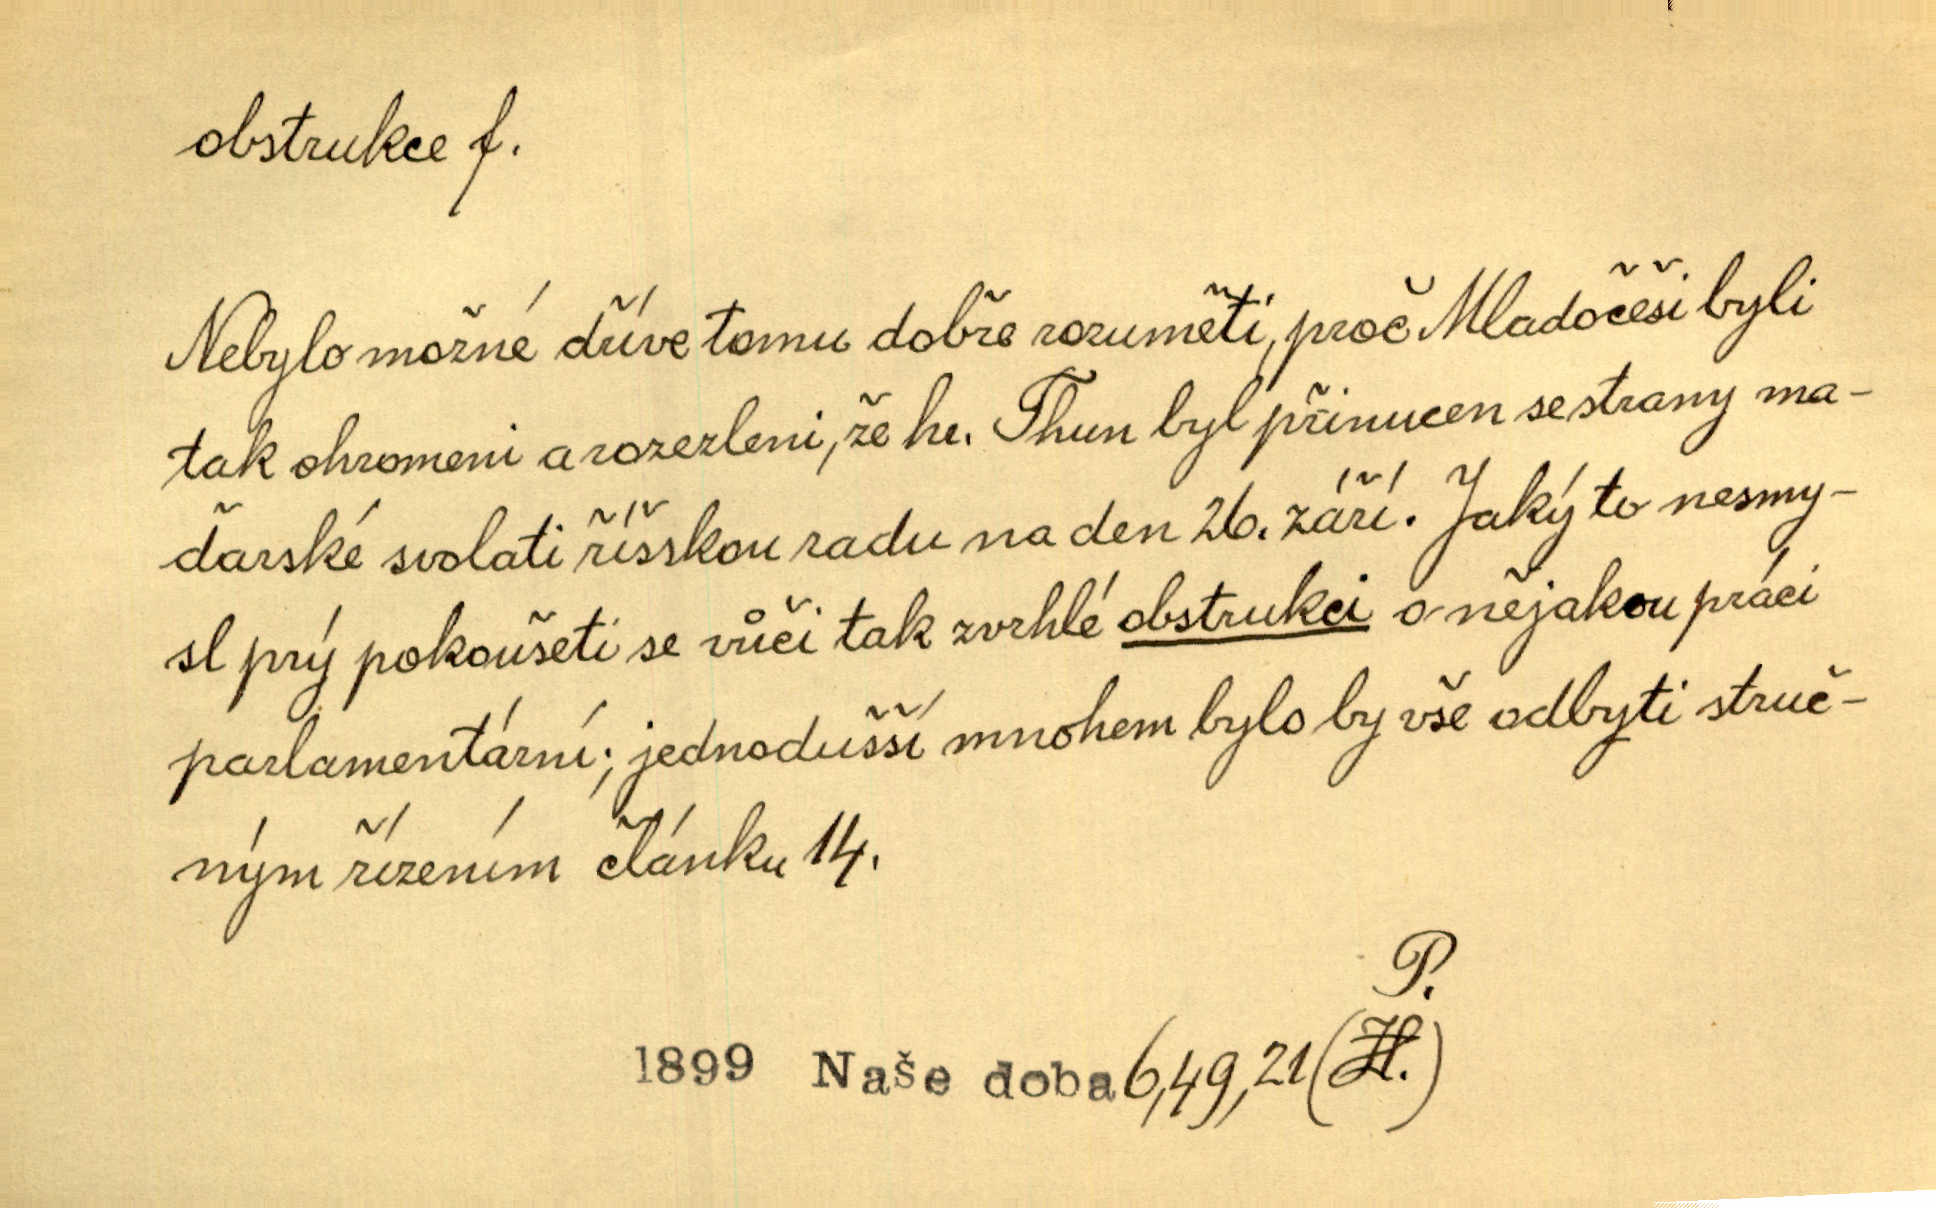 obstrukce f.
Nebylo možné dříve tomu dobře rozuměti, proč Mladočeši byli
tak ohromeni a rozezleni, že hr. Thun byl přinucen se strany ma-
ďarské svolati říšskou radu na den 26. září. Jaký to nesmy-
sl prý pokoušeti se vůči tak zvrhlé obstrukci o nějakou práci
parlamentární; jednodušší mnohem bylo by vše odbyti struč-
ným řízením článku 14.
P.
1899 Naše doba 6,49,21